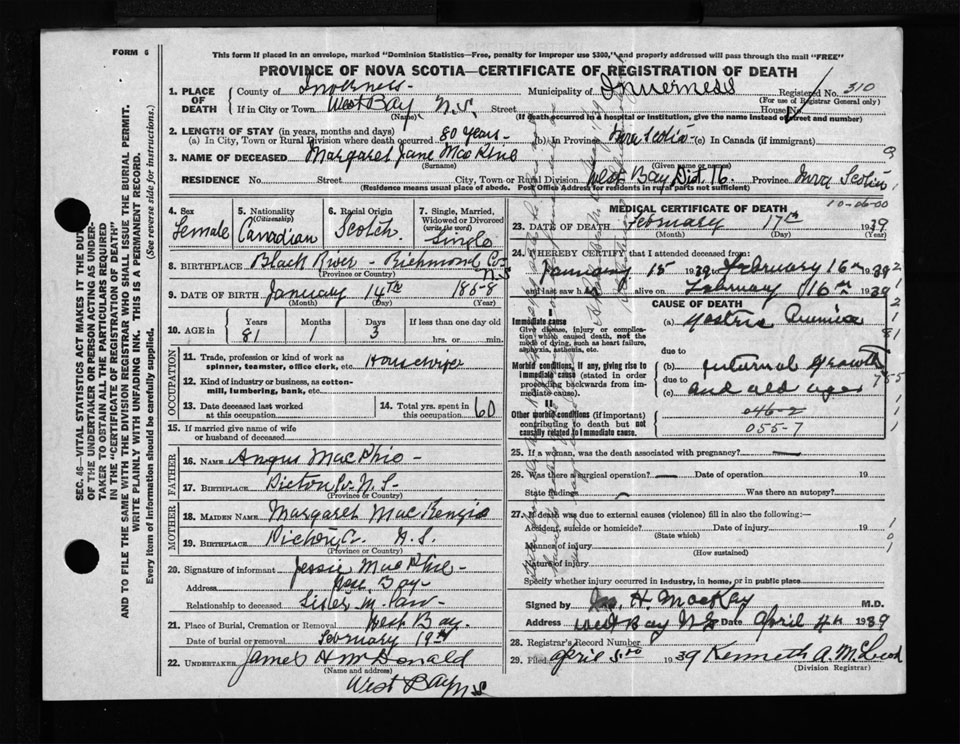 FORM 6
This form if placed in an envelope, marked "Dominion Statistics—Free, penalty for improper use $300," and properly addressed will pass through the mail "FREE"
PROVINCE OF NOVA SCOTIA—CERTIFICATE OF REGISTRATION OF DEATH
1. PLACE OF DEATH County of Inverness Municipality of Inverness Registered No. 310
(For use of Registrar General only)
If in City or Town West Bay N.S. Street House No.
(Name) (If death occurred in a hospital or institution, give the name instead of street and number)
2. LENGTH OF STAY (in years, months and days)
(a) In City, Town or Rural Division where death occurred 80 years- (b) In Province Nova Scotia (c) In Canada (if immigrant)
3. NAME OF DECEASED Margaret Jane
(Surname) (Given name or names)
RESIDENCE No. Street City, Town or Rural Division West Bay Dist. 16. Province Nova Scotia
(Residence means usual place of abode. Post Office Address for residents in rural parts not sufficient)
4. Sex Female
5. Nationality (Citizenship) Canadian
6. Racial Origin Scotch
7. Single, Married, Widowed or Divorced (write the word) Single
8. BIRTHPLACE Black River - Richmond Co. N.S
(Province or Country)
9. DATE OF BIRTH January 14th 185-8
(Month) (Day) (Year)
10. AGE in Years 81 Months 1 Days 3 If less than one day hrs. or min.
OCCUPATION
11. Trade, profession or kind of work as spinner, teamster, office clerk, etc. Housewife
12. Kind of industry or business, as cotton-mill, lumbering, bank, etc.
13. Date deceased last worked at this occupation
14. Total yrs. spent in this occupation 60
15. If married give name of wife or husband of deceased
FATHER
16. NAME Angus
17. BIRTHPLACE Pictou Co. N.S-
(Province or Country)
MOTHER
18. MAIDEN NAME Margaret MacKenzie
19. BIRTHPLACE Pictou Co. N.S.
(Province or Country)
20. Signature of informant Jessie
Address West Bay-
Relationship to deceased Sister in law
21. Place of Burial, Cremation or Removal West Bay.
Date of burial or removal February 19th
22. UNDERTAKER James H McDonald
(Name and address)
West Bay N.S
10-06-00
MEDICAL CERTIFICATE OF DEATH
23. DATE OF DEATH February 17th 1939
(Month) (Day)
24. I HEREBY CERTIFY that I attended deceased from:
January 15 1939 to February 16th 1939
and last saw h alive on February 16th 1939
CAUSE OF DEATH
Immediate cause
Give disease, injury or complication which caused death, not the mode of dying, such as heart failure, asphyxia, asthenia, etc.
(a)
due to
Morbid conditions, if any, giving rise to immediate cause (stated in order proceeding backwards from immediate cause).
(b) Internal Growth
due to
(c) and old age
II
Other morbid conditions (if important) contributing to death but not causally related to immediate cause.
046-2
055-7
25. If a woman, was the death associated with pregnancy?
26. Was there a surgical operation? Date of operation 19
State findings Was there an autopsy?
27. If death was due to external causes (violence) fill in also the following:—
Accident, suicide or homicide? Date of injury 19
(State which)
Manner of injury
(How sustained)
Nature of injury
Specify whether injury occurred in industry, in home, or in public place
Signed by H. MacKay M.D.
Address West Bay N.S Date April 4th 1939
28. Registrar's Record Number
29. Filed April 5th 1939 Kenneth A. McLeod
(Division Registrar)
SEC. 46—VITAL STATISTICS ACT MAKES IT THE DUTY OF THE UNDERTAKER OR PERSON ACTING AS UNDERTAKER TO OBTAIN ALL THE PARTICULARS REQUIRED IN THE "CERTIFICATE OF REGISTRATION OF DEATH" AND TO FILE THE SAME WITH THE DIVISION REGISTRAR WHO SHALL ISSUE THE BURIAL PERMIT.
WRITE PLAINLY WITH UNFADING INK. THIS IS A PERMANENT RECORD.
Every item of information should be carefully supplied. (See reverse side for instructions.)